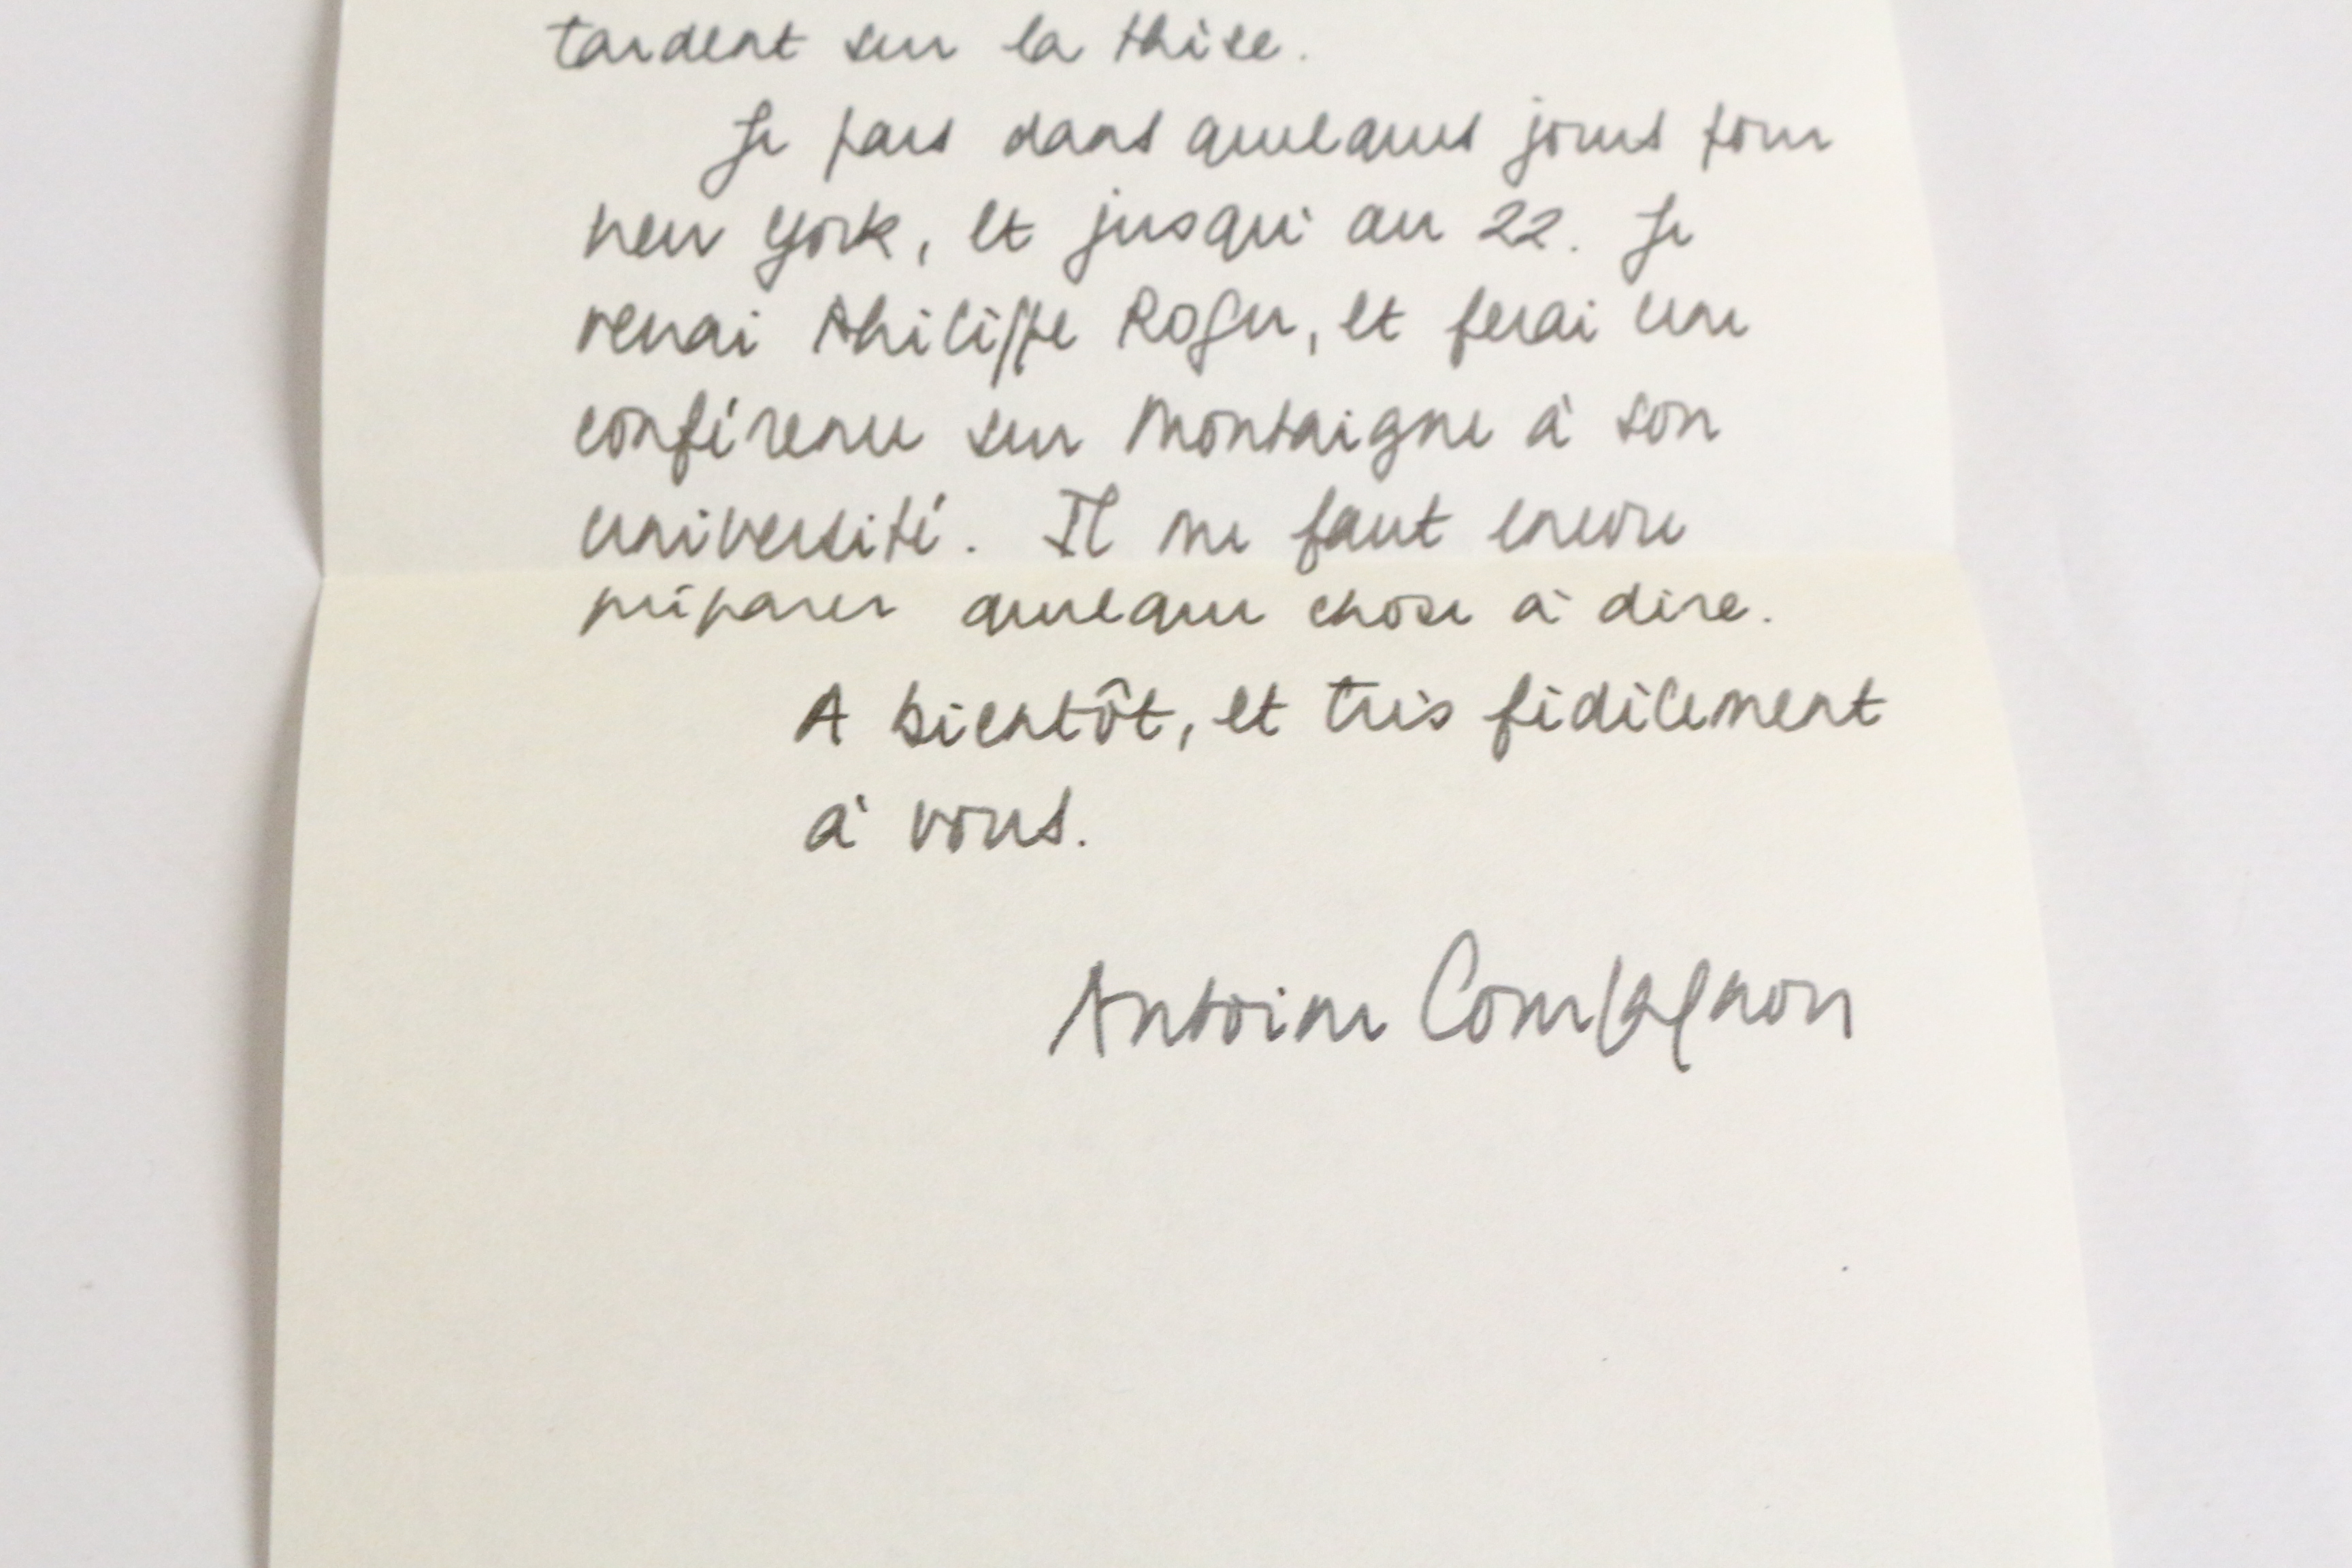 tardent sur la thèse.
Je pars dans quelques jours pour
New York, et jusqu'au 22. Je
verrai Philippe Roger, et ferai une
conférence sur Montaigne à son
université. Il me faut encore
préparer quelque chose à dire.
A bientôt, et très fidèlement
à vous.
Antoine Compagnon